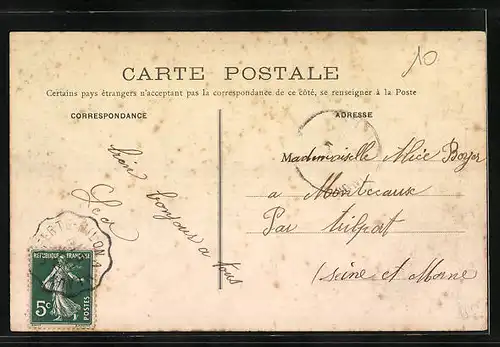 10
CARTE POSTALE
Certains pays étrangers n'acceptant pas la correspondance de ce côté, se renseigner à la Poste
CORRESPONDANCE
ADRESSE
bien bonjour a tous
Mademoiselle Alice Boyer
a Montceaux
Par Trilport
Seine et Marne
RÉPUBLIQUE FRANÇAISE
5c
POSTES